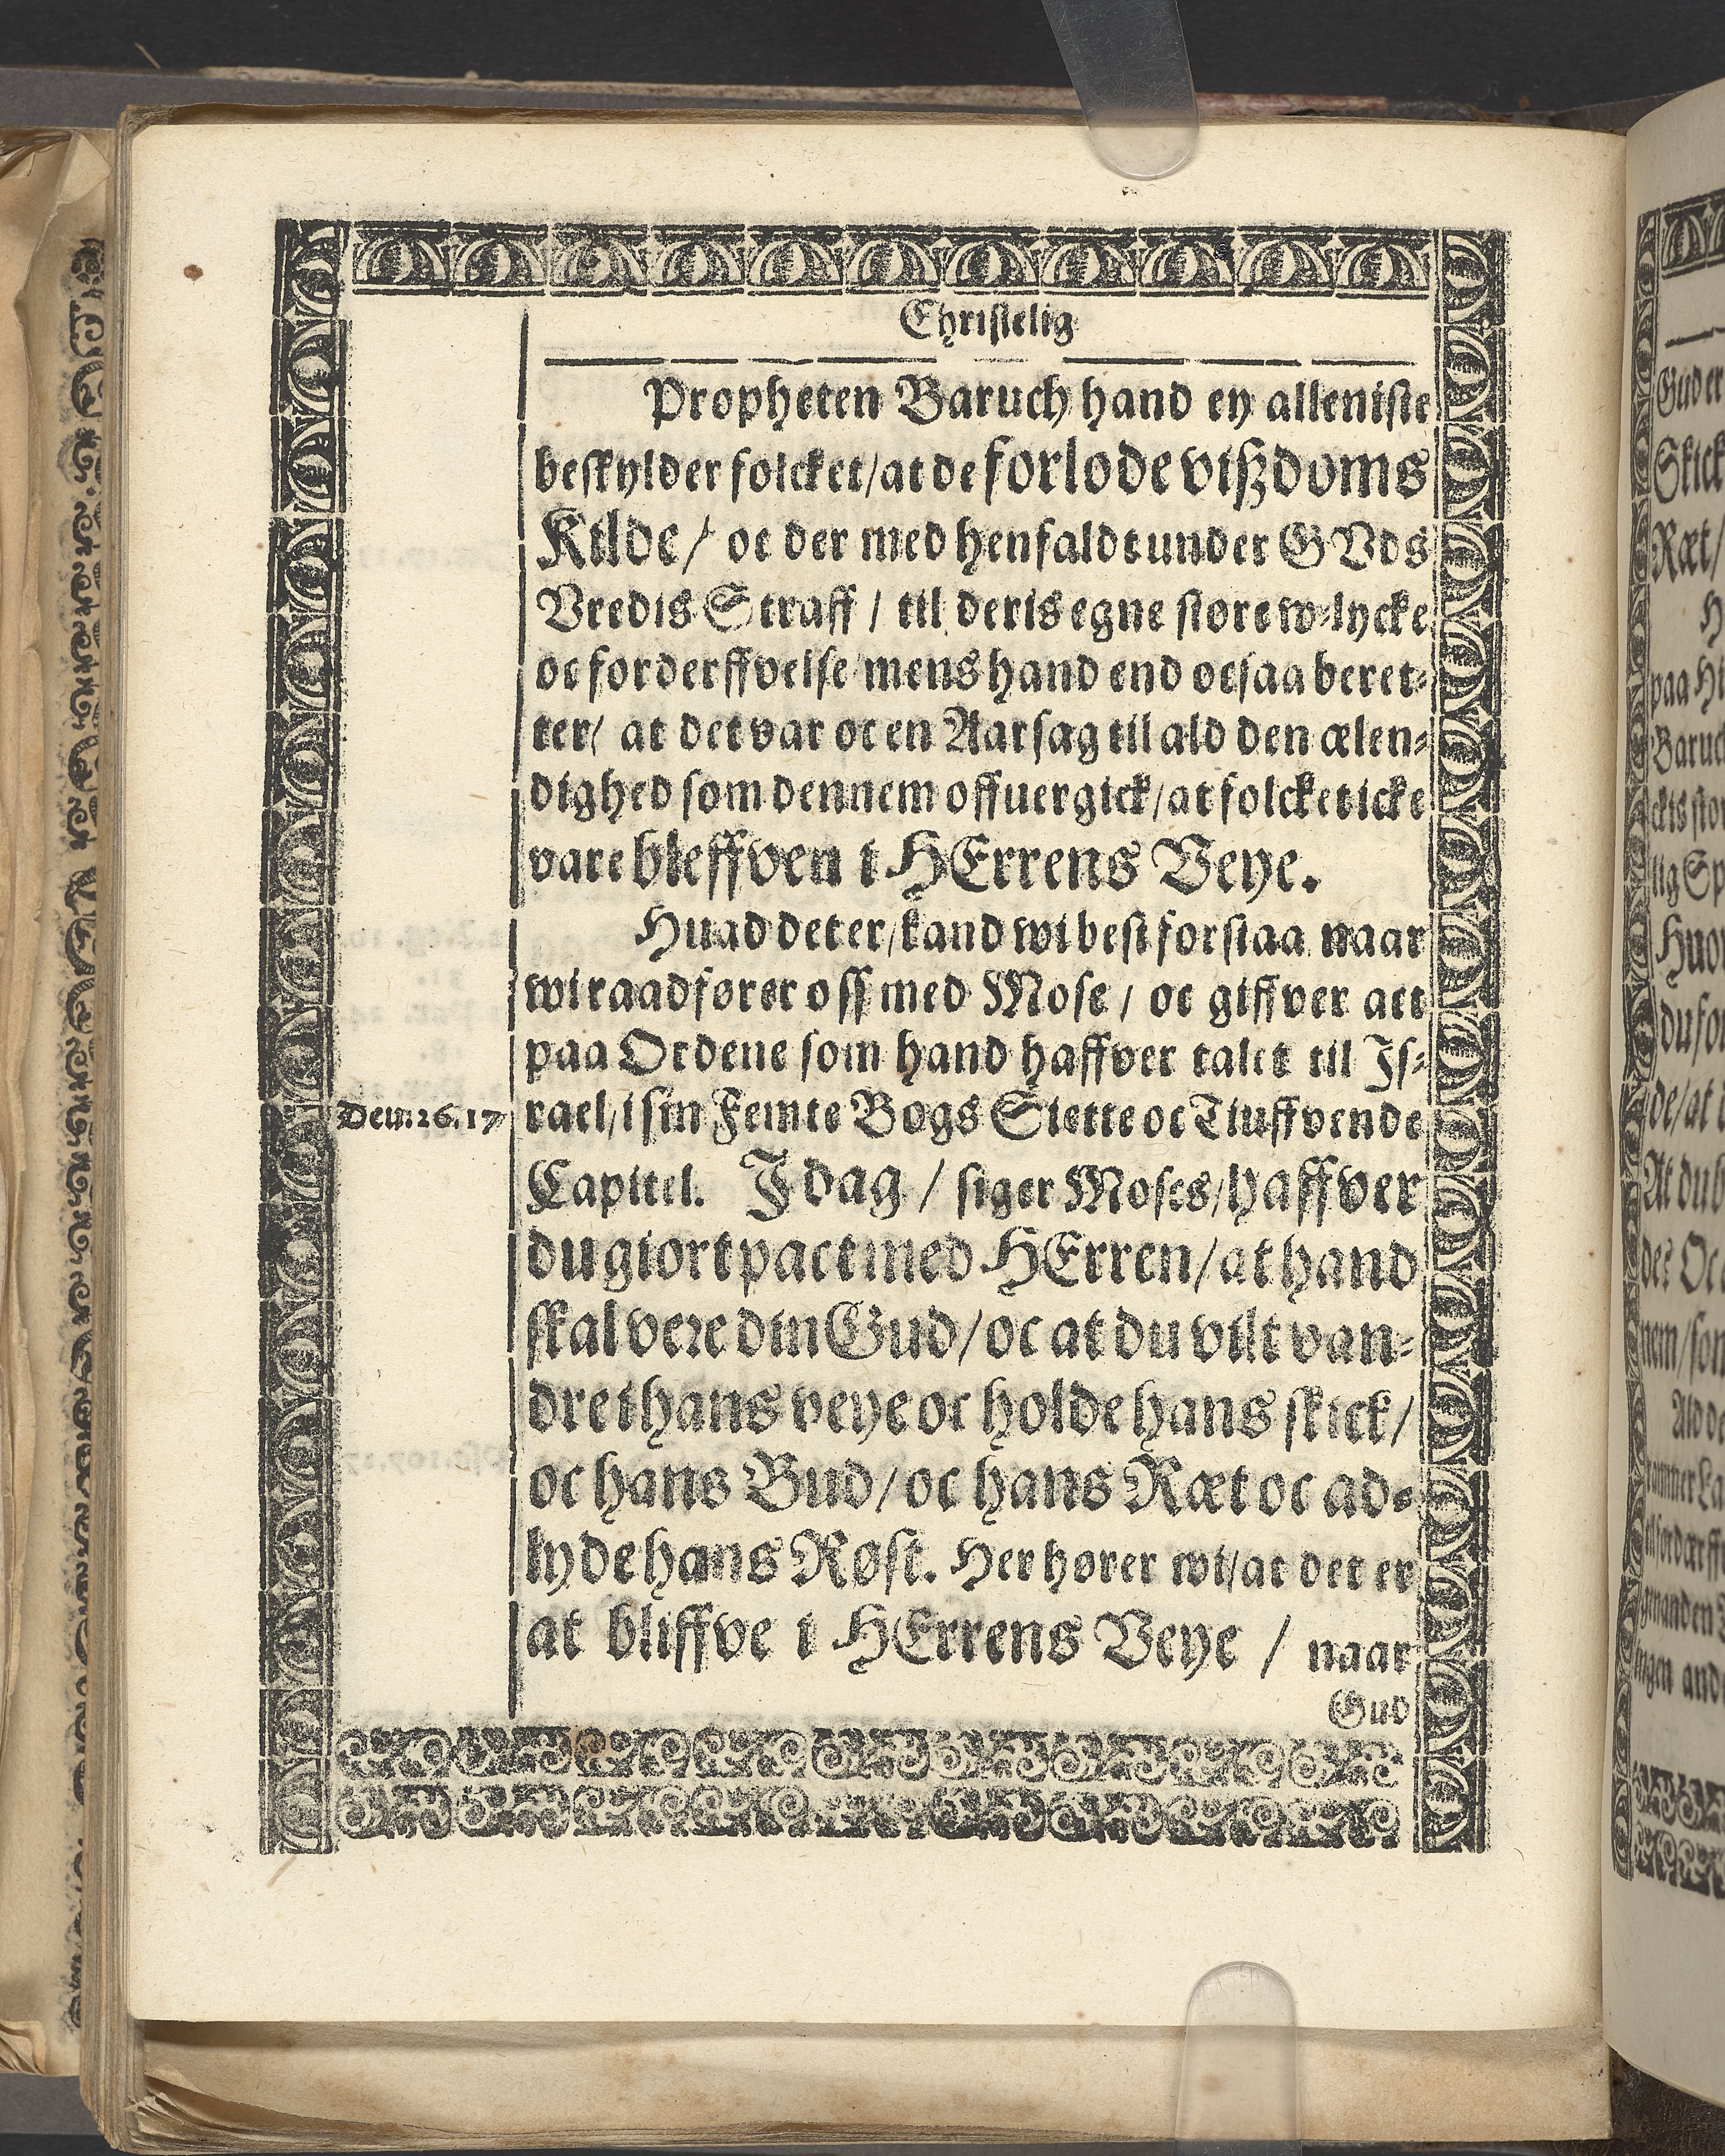 Christelig
Propheten Baruch hand ey alleniste
beskylder folcket/ at de forlode vißdoms
Kilde/ oc der med henfaldt under GVds
Vredis Straff / til deris egne store w-lycke
oc forderffvelse mens hand end ocsaa beret-
ter/ at det var oc en Aarsag til ald den ælen-
dighed som dennem offuergick/ at folcket icke
vare bleffven i HErrens Veye.
Huad det er/ kand wi best forstaa naar
wi raadfører oss med Mose / oc giffver act
paa Ordene som hand haffver talet til Is-
Deut. 26. 17
rael/ i sin Femte Bogs Siette oc Tiuffvende
Capitel. I dag / siger Moses/ haffver
du giort pact med HErren/ at hand
skal vere din Gud/ oc at du vilt van-
dre i hans veye oc holde hans skick/
oc hans Bud/ oc hans Ræt oc ad-
lyde hans Røst. Her hører wi/ at det er
at bliffve i HErrens Veye / naar
Gud